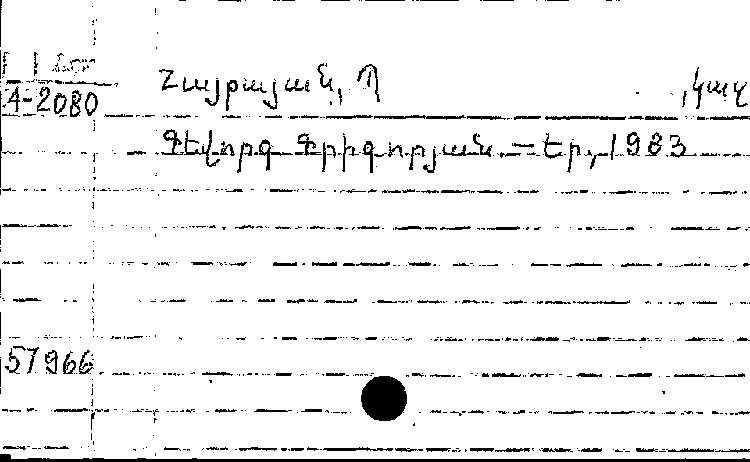 A-2080
Հայրայան, Պ ,կազ
Գևորգ Գրիգորյան. – Եր., 1983
57966